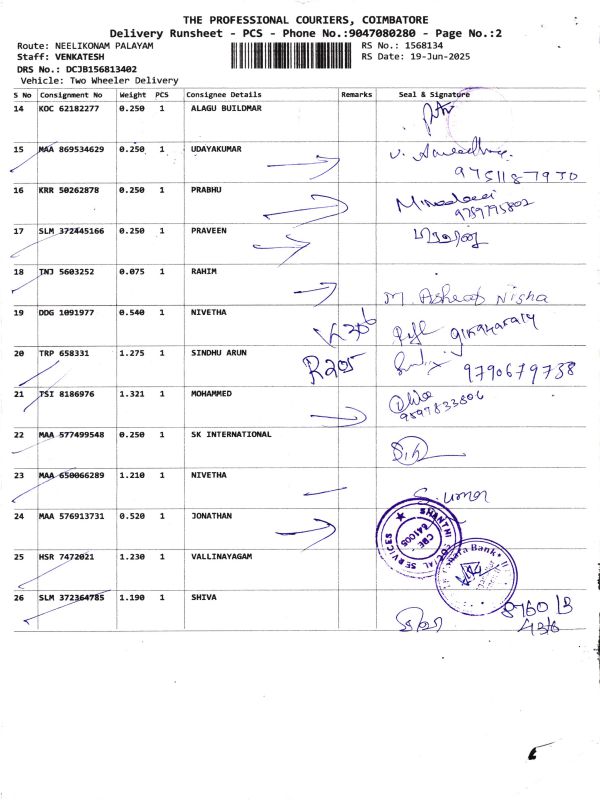 THE PROFESSIONAL COURIERS, COIMBATORE
Delivery Runsheet - PCS - Phone No.:9047080280 - Page No.:2
Route: NEELIKONAM PALAYAM
RS No.: 1568134
Staff: VENKATESH
RS Date: 19-Jun-2025
DRS No.: DCJB156813402
Vehicle: Two Wheeler Delivery
S No Consignment No Weight PCS Consignee Details Remarks Seal & Signature
14 KOC 62182277 0.250 1 ALAGU BUILDMAR
15 MAA 869534629 0.250 1 UDAYAKUMAR
9751187930
16 KRR 50262878 0.250 1 PRABHU
9789795802
17 SLM 372445166 0.250 1 PRAVEEN
18 TNJ 5603252 0.075 1 RAHIM
M. Asheap Nisha
19 DDG 1091977 0.540 1 NIVETHA
20 TRP 658331 1.275 1 SINDHU ARUN R205
9790679738
21 TSI 8186976 1.321 1 MOHAMMED
9597833806
22 MAA 577499548 0.250 1 SK INTERNATIONAL
23 MAA 650066289 1.210 1 NIVETHA
24 MAA 576913731 0.520 1 JONATHAN
SHANTHI SOCIAL SERVICES
CBE - 641005
25 HSR 7472021 1.230 1 VALLINAYAGAM
Canara Bank
26 SLM 372364785 1.190 1 SHIVA